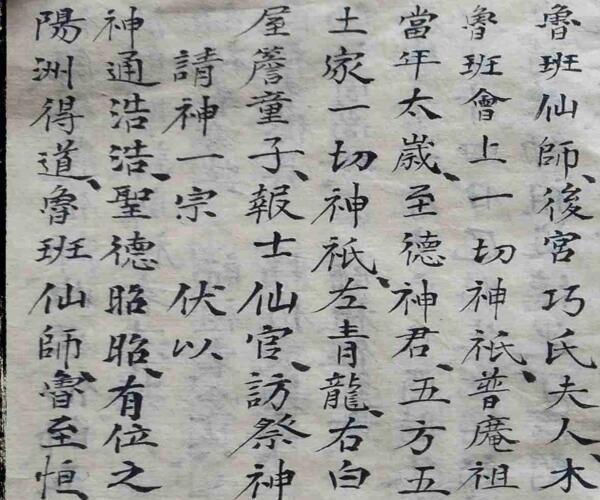 魯班仙師、後宮巧氏夫人、木
魯班會上一切神祇、普庵祖
當年太歲、至德神君、五方五
土家一切神祇、左青龍、右白
屋簷童子、報士仙官、訪祭神
請神一宗 伏以
神通浩浩、聖德昭昭、有位之
陽洲得道、魯班仙師、魯至恒、